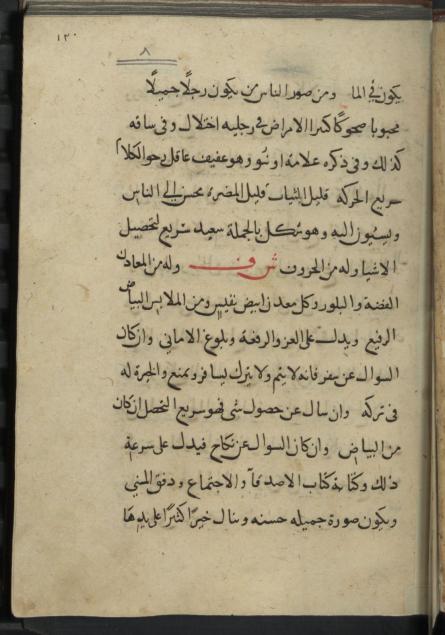 ١٢٠
٨
يكون في الما ومن صور الناس من يكون رجلًا جميلًا
محبوبا ضحوكًا كثير الامراض في رجليه اختلال وفي ساقه
كذلك وفي ذكره علامة او نتو وهو عفيف عاقل رخو الكلام
سريع الحركه قليل الثياب قليل المضره محسن الي الناس
ويسيون اليه وهو مشكل بالجملة سعيد سريع لتحصيل
الاشيا وله من الحروف ش ف وله من المعادن
الفضة والبلور وكل معدن ابيض نفيس ومن الملابس البياض
الرفيع ويدل على العز والرفعة وبلوغ الاماني وان كان
السوال عن سفر فانه لا يتم ولا يترك يسافر ويمنع والخيرة له
في تركه وان سال عن حصول شي فهو سريع التحصل ان كان
من البياض وان كان السوال عن نكاح فيدل على سرعة
ذلك وكتابة كتاب الاصدقآ والاجتماع ودفق المني
ويكون صورة جميله حسنه وينال خيرًا كثيرًا على يديها